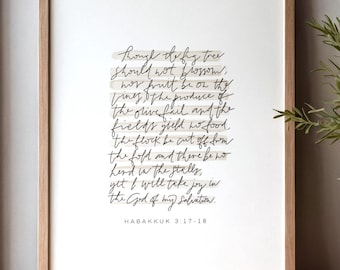 Though the fig tree
should not blossom,
nor fruit be on the
vines, the produce of
the olive fail and the
fields yield no food,
the flock be cut off from
the fold and there be no
herd in the stalls,
yet I will take joy in
the God of my salvation.
HABAKKUK 3:17-18